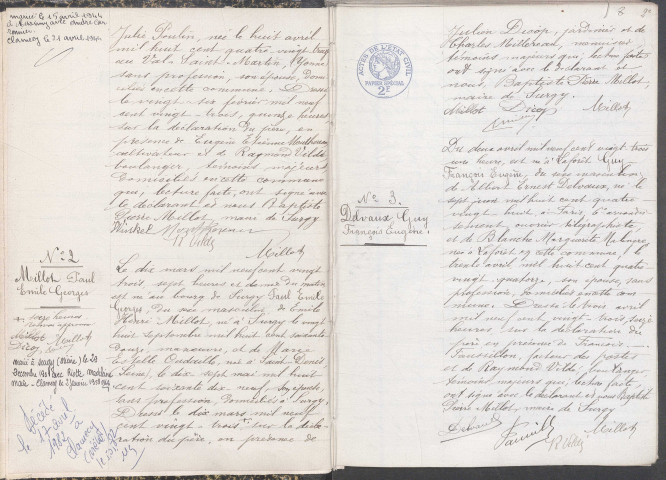 marié le 15 avril 1944
Clamecy le 21 avril 1944
Julie Poulin, née le huit avril
mil huit cent quatre vingt
au Val Saint-Martin, Yonne
sans profession, son épouse, domi
ciliés en cette commune. Dressé
le vingt six février mil neuf
cent vingt trois, onze heures
sur la déclaration du père, en
présence de Eugène Etienne
cultivateur et de Raymond Vildé
boulanger, témoins majeurs
domiciliés en cette commune
qui, lecture faite, ont signé avec
le déclarant et nous Baptiste
Pierre Millot, maire de Surgy
R Vildé
Millot
No 2
Millot Paul
Emile Georges
seize heures
Millot Millot
Décap
marié à Surgy (Nièvre) le 29
Décembre 19
Clamecy le 2 janvier
Décédé
le 17 avril
à
Clamecy
Le dix mars mil neuf cent vingt
trois, sept heures et demie du matin
est né au bourg de Surgy Paul Emile
Georges, du sexe masculin, de Emile
Henri Millot, né à Surgy le vingt
huit septembre mil huit cent soixante
douze, menuisier, et de Marie
née à Saint Denis
(Seine), le dix sept mai mil huit
cent soixante dix neuf, son épouse,
sans profession, domiciliés à Surgy.
Dressé le dix mars mil neuf
cent vingt-trois, sur la décla
ration du père, en présence de
8
ACTES DE L'ETAT CIVIL
PAPIER SPECIAL
2F
No 3.
Delvaux Guy
François Eugène
Julien Décap, jardinier et de
Charles Millereau, menuisier
témoins majeurs qui, lecture faite
ont signé avec le déclarant et
nous, Baptiste Pierre Millot,
maire de Surgy.
Millot Décap Millot
Du deux avril mil neuf cent vingt trois
une heure, est né à Laforêt Guy
François Eugène, du sexe masculin
de Albert Ernest Delvaux, né le
sept août mil huit cent quatre-
vingt huit à Paris,
ouvrier télégraphiste
et de Blanche Marguerite
née à Laforêt en cette commune, le
trente avril mil huit cent quatre
vingt quatorze, son épouse, sans
profession, domiciliés en cette com
mune. Dressé le trois avril
mil neuf cent vingt trois, seize
heures sur la déclaration du
père en présence de François
facteur des postes
et de Raymond Vildé, boulanger
témoins majeurs qui, lecture faite,
ont signé avec le déclarant et nous Baptiste
Pierre Millot, maire de Surgy
Delvaux Millot
R Vildé